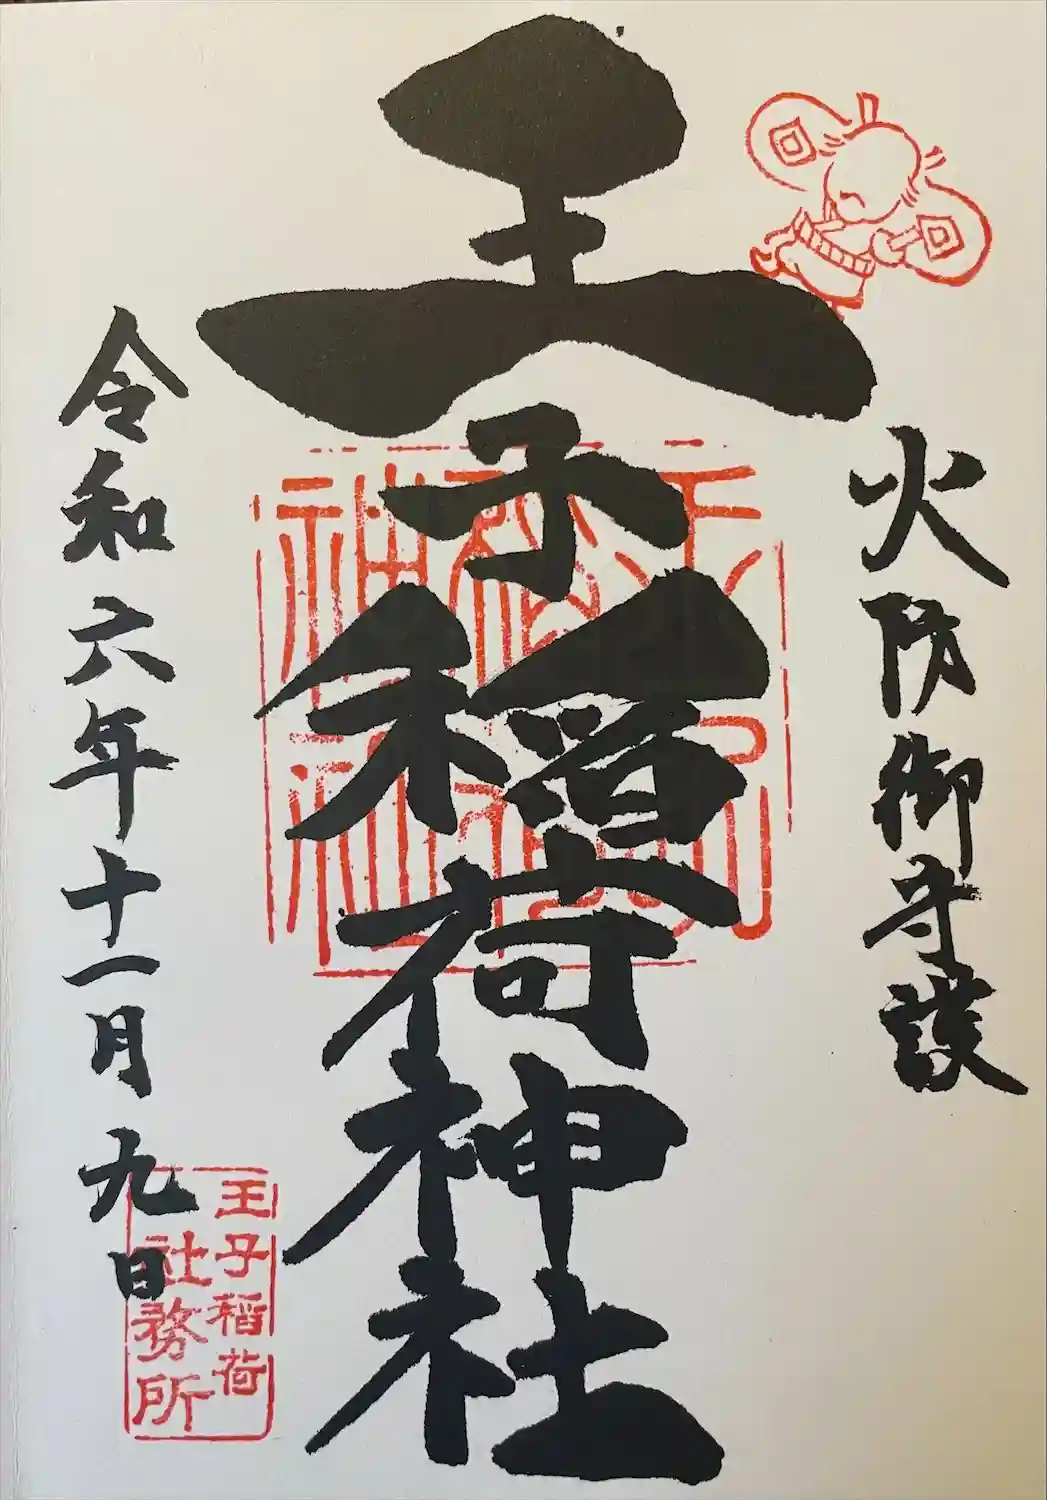 火防御守護
王子稲荷神社
令和六年十一月九日
王子稲荷
神社
王子稲荷
社務所